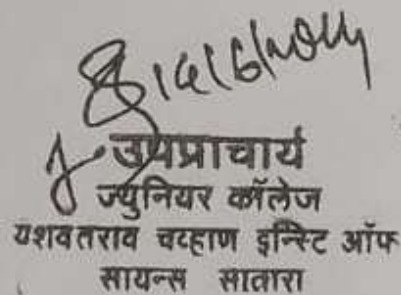 उपप्राचार्य
ज्युनियर कॉलेज
यशवतराव चव्हाण इन्स्टि ऑफ
सायन्स सातारा